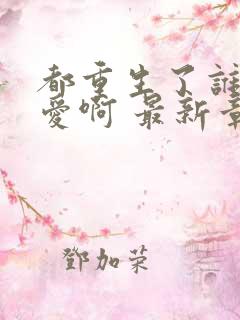 都重生了誰
愛啊 最新章
鄧加荣